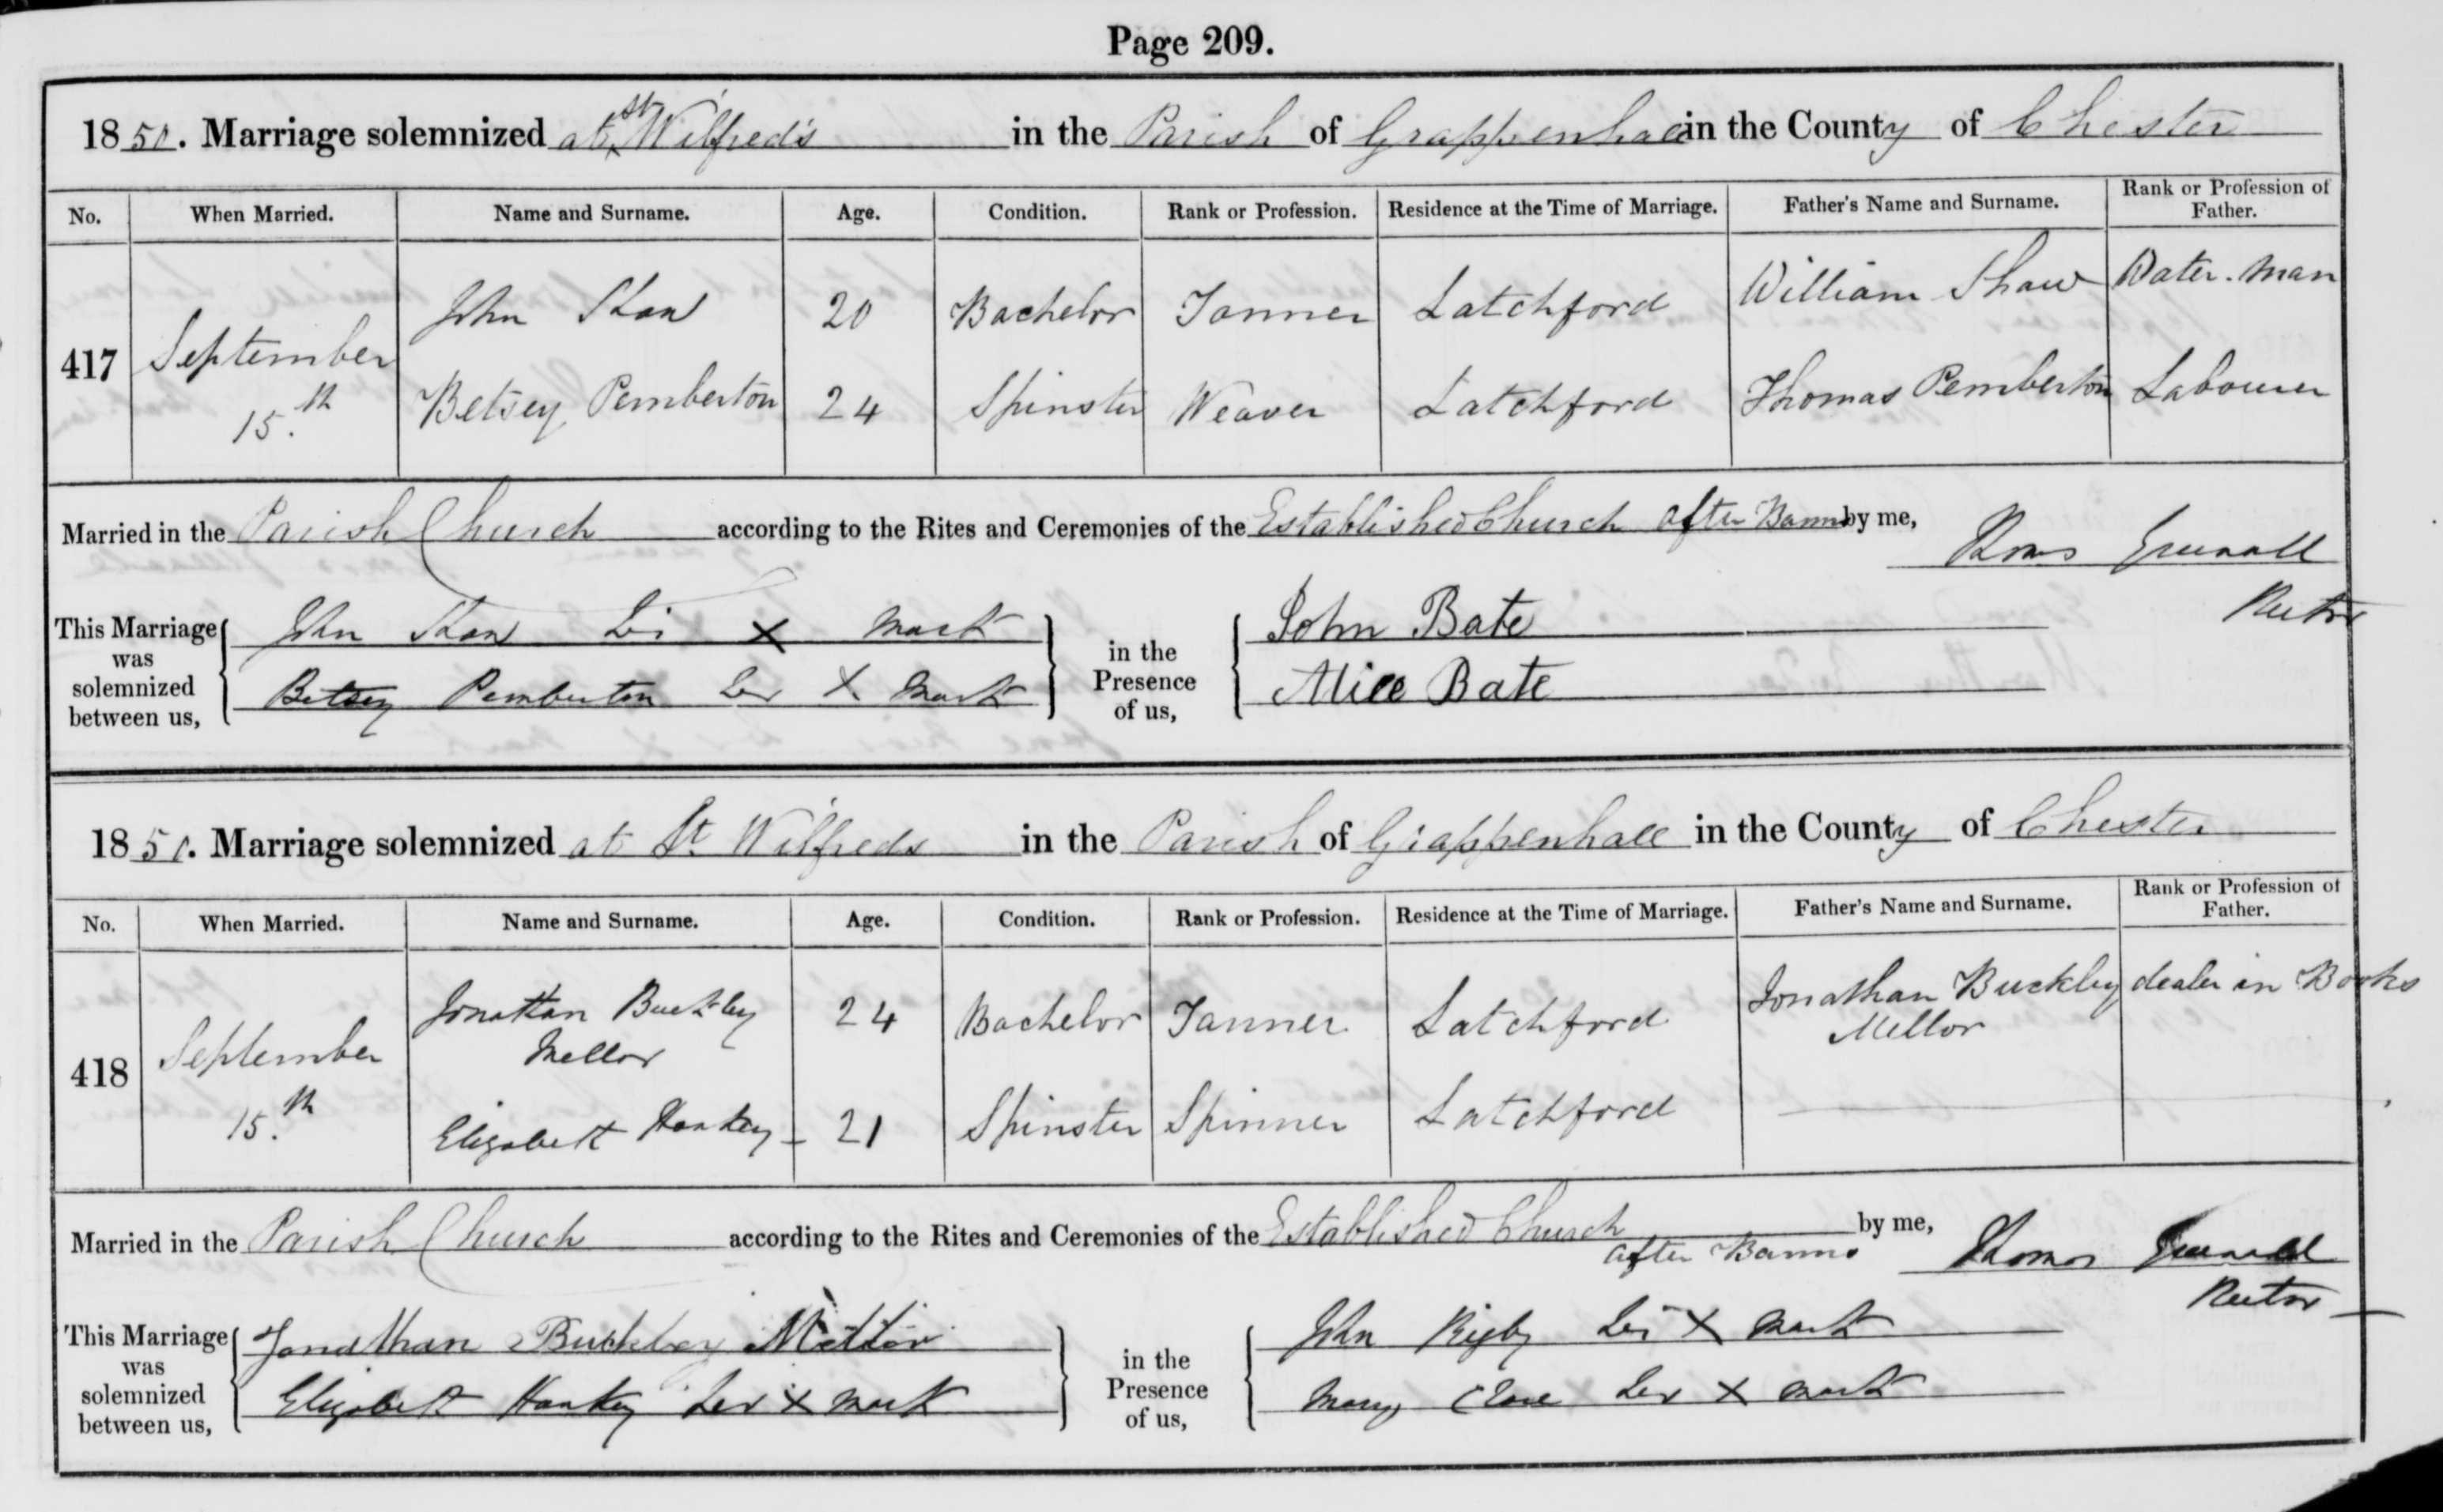 Page 209.
1850. Marriage solemnized at St Wilfred's in the Parish of Grappenhall in the County of Chester
No. When Married. Name and Surname. Age. Condition. Rank or Profession. Residence at the Time of Marriage. Father's Name and Surname. Rank or Profession of Father.
417 September 15.th John Shaw 20 Bachelor Tanner Latchford William Shaw Water-man
Betsey Pemberton 24 Spinster Weaver Latchford Thomas Pemberton Labourer
Married in the Parish Church according to the Rites and Ceremonies of the Established Church after Banns by me,
Thomas Greenall
Rector
This Marriage was solemnized between us,
John Shaw his X mark
Betsey Pemberton her X mark
in the Presence of us,
John Bate
Alice Bate
1850. Marriage solemnized at St Wilfreds in the Parish of Grappenhall in the County of Chester
No. When Married. Name and Surname. Age. Condition. Rank or Profession. Residence at the Time of Marriage. Father's Name and Surname. Rank or Profession of Father.
418 September 15.th Jonathan Buckley Mellor 24 Bachelor Tanner Latchford Jonathan Buckley Mellor dealer in Books
Elizabeth Hankey 21 Spinster Spinner Latchford
Married in the Parish Church according to the Rites and Ceremonies of the Established Church after Banns by me,
Thomas Greenall
Rector
This Marriage was solemnized between us,
Jonathan Buckley Mellor
Elizabeth Hankey her X mark
in the Presence of us,
John Rigby his X mark
Mary her X mark